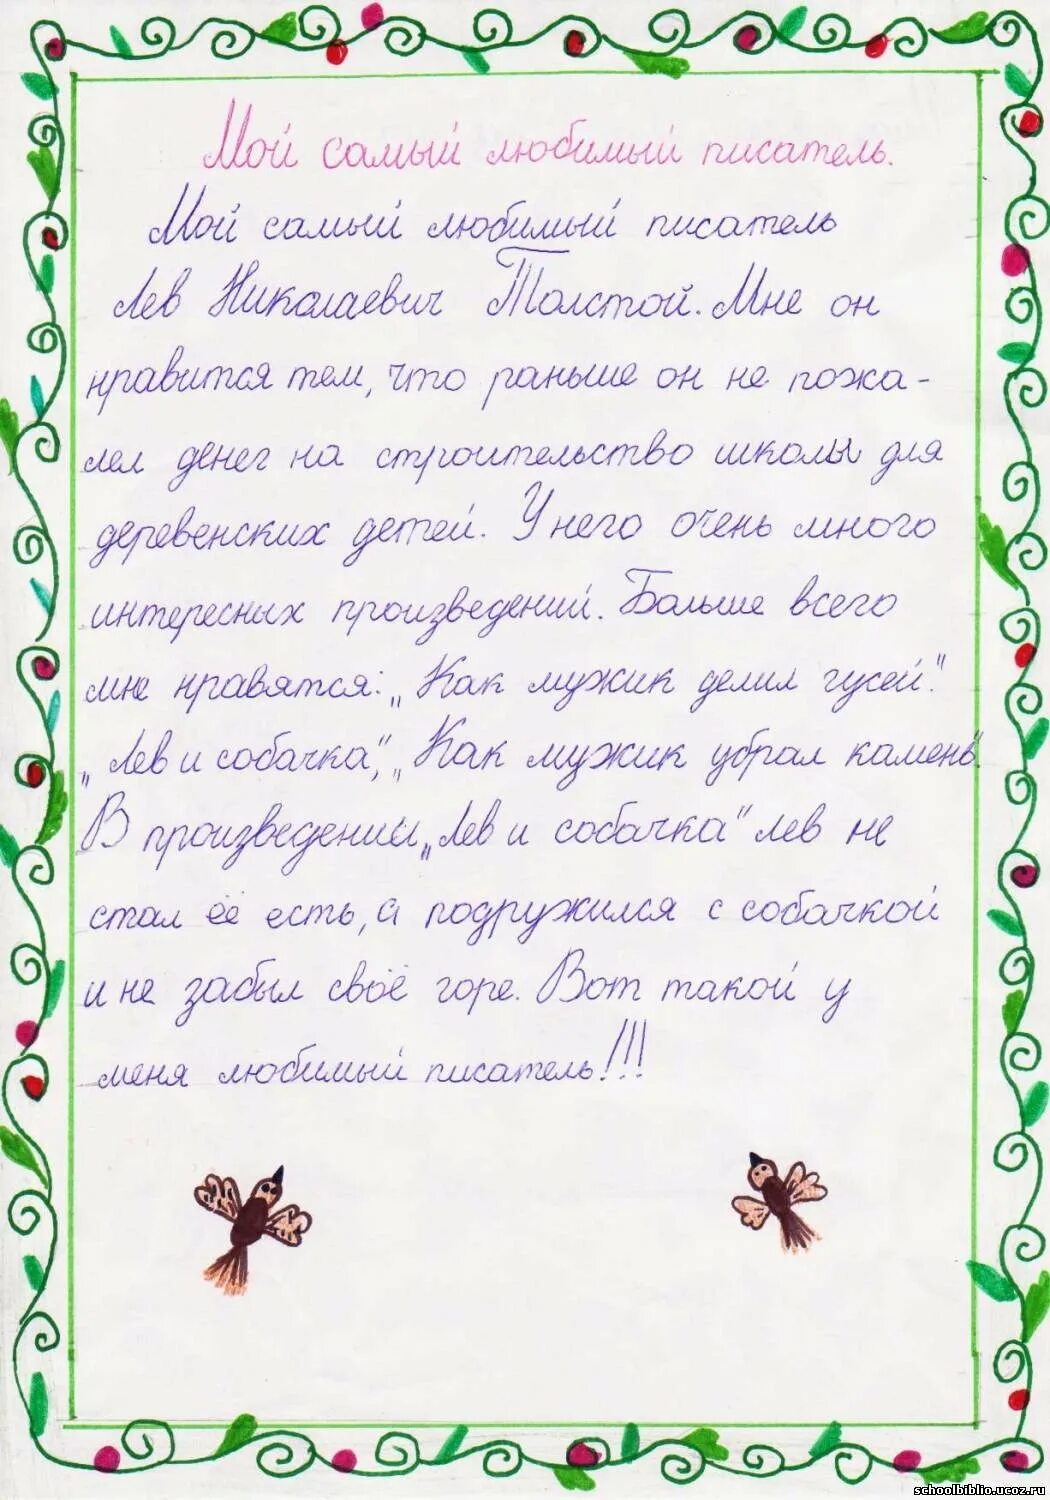 Мой самый любимый писатель.
Мой самый любимый писатель
Лев Николаевич Толстой. Мне он
нравится тем, что раньше он не пожа-
лел денег на строительство школы для
деревенских детей. У него очень много
интересных произведений. Больше всего
мне нравятся: „Как мужик делил гусей."
„Лев и собачка", „Как мужик убрал камень".
В произведении „Лев и собачка" лев не
стал её есть, а подружился с собачкой
и не забыл своё горе. Вот такой у
меня любимый писатель!!!
schoolbiblio.ucoz.ru